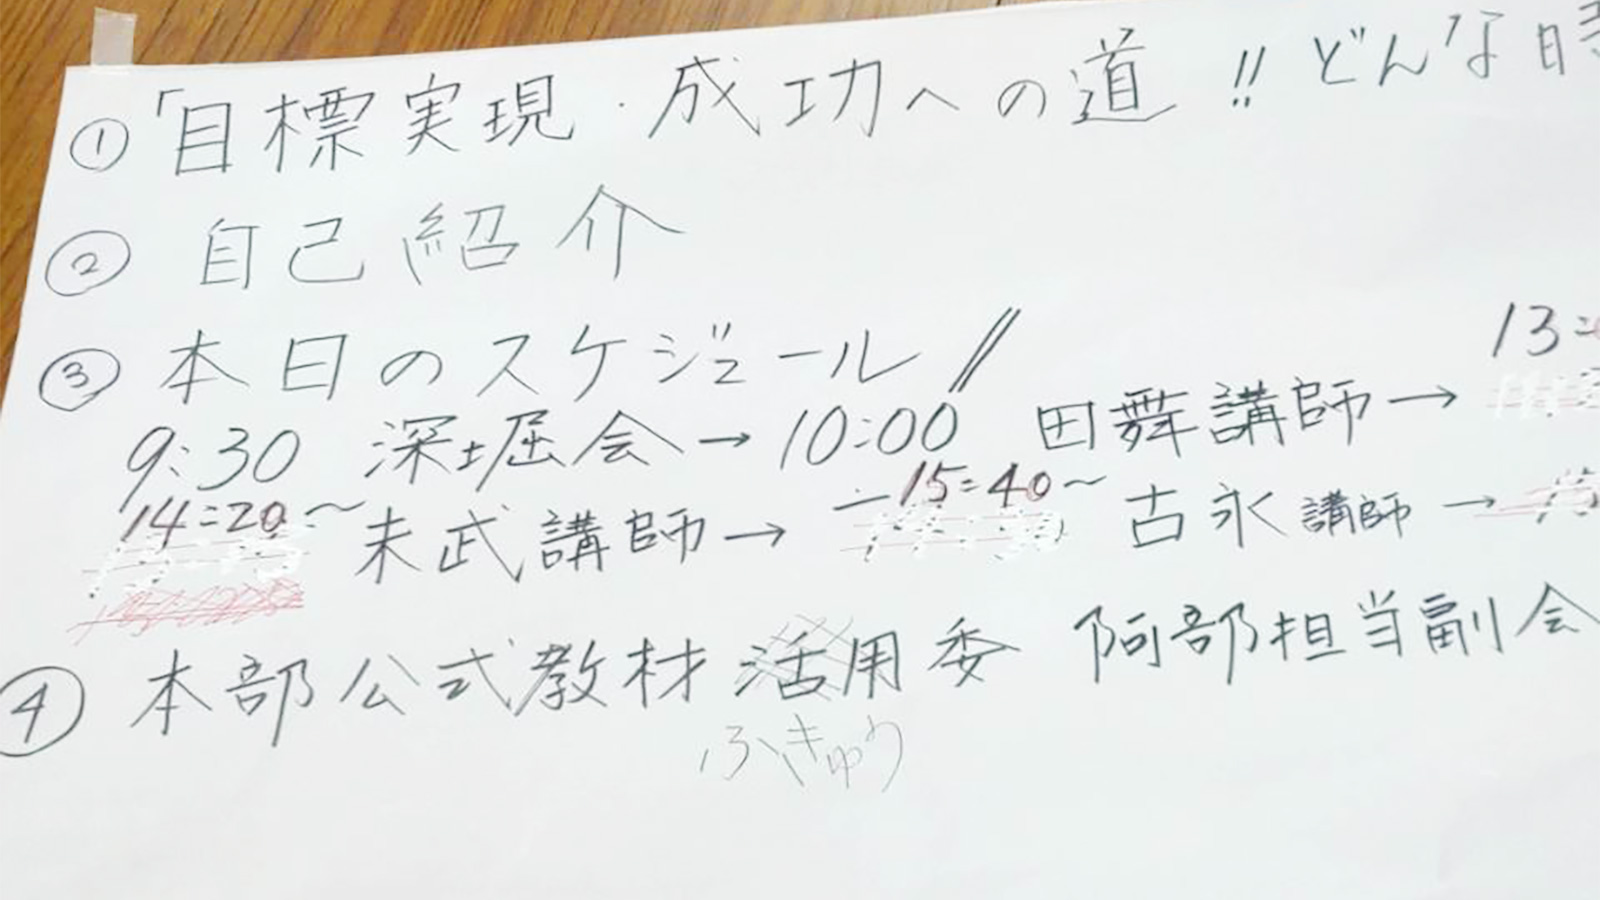 ①「目標実現・成功への道!! どんな時
② 自己紹介
③ 本日のスケジュール //
13:
9:30 深堀会→10:00 田舞講師→
14:20~ 末武講師→ 15:40~ 古永講師→
④ 本部公式教材活用委 阿部担当副会
ふきゅう